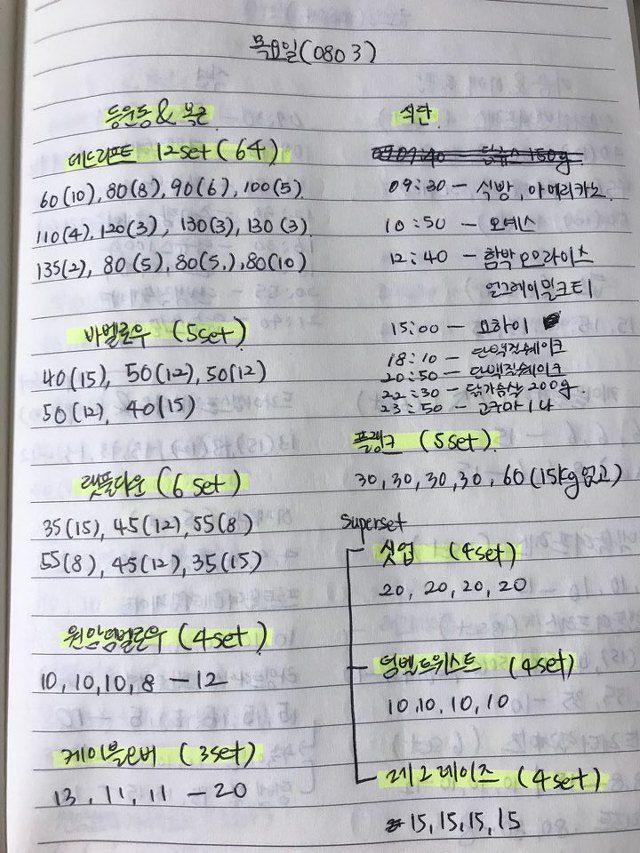 목요일(0803)
등운동 & 복근
데드리프트 12set(64)
60(10), 80(8), 90(6), 100(5)
110(4), 120(3), 130(3), 130(3)
135(2), 80(5), 80(5,), 80(10)
바벨로우 (5set)
40(15), 50(12), 50(12)
50(12), 40(15)
랫풀다운 (6set)
35(15), 45(12), 55(8)
55(8), 45(12), 35(15)
원암덤벨로우 (4set)
10, 10, 10, 8 - 12
케이블오버 (3set)
13, 11, 11 - 20
식단
09:30 - 식빵, 아메리카노
10:50 - 오예스
12:40 - 함박오므라이스
얼그레이밀크티
15:00 - 요하이
18:10 - 단백질쉐이크
20:50 - 단백질쉐이크
22:30 - 닭가슴살 200g
23:50 - 고구마 1개
플랭크 (5set)
30, 30, 30, 30, 60(15kg얹고)
superset
싯업 (4set)
20, 20, 20, 20
덤벨트위스트 (4set)
10, 10, 10, 10
레그레이즈 (4set)
15, 15, 15, 15